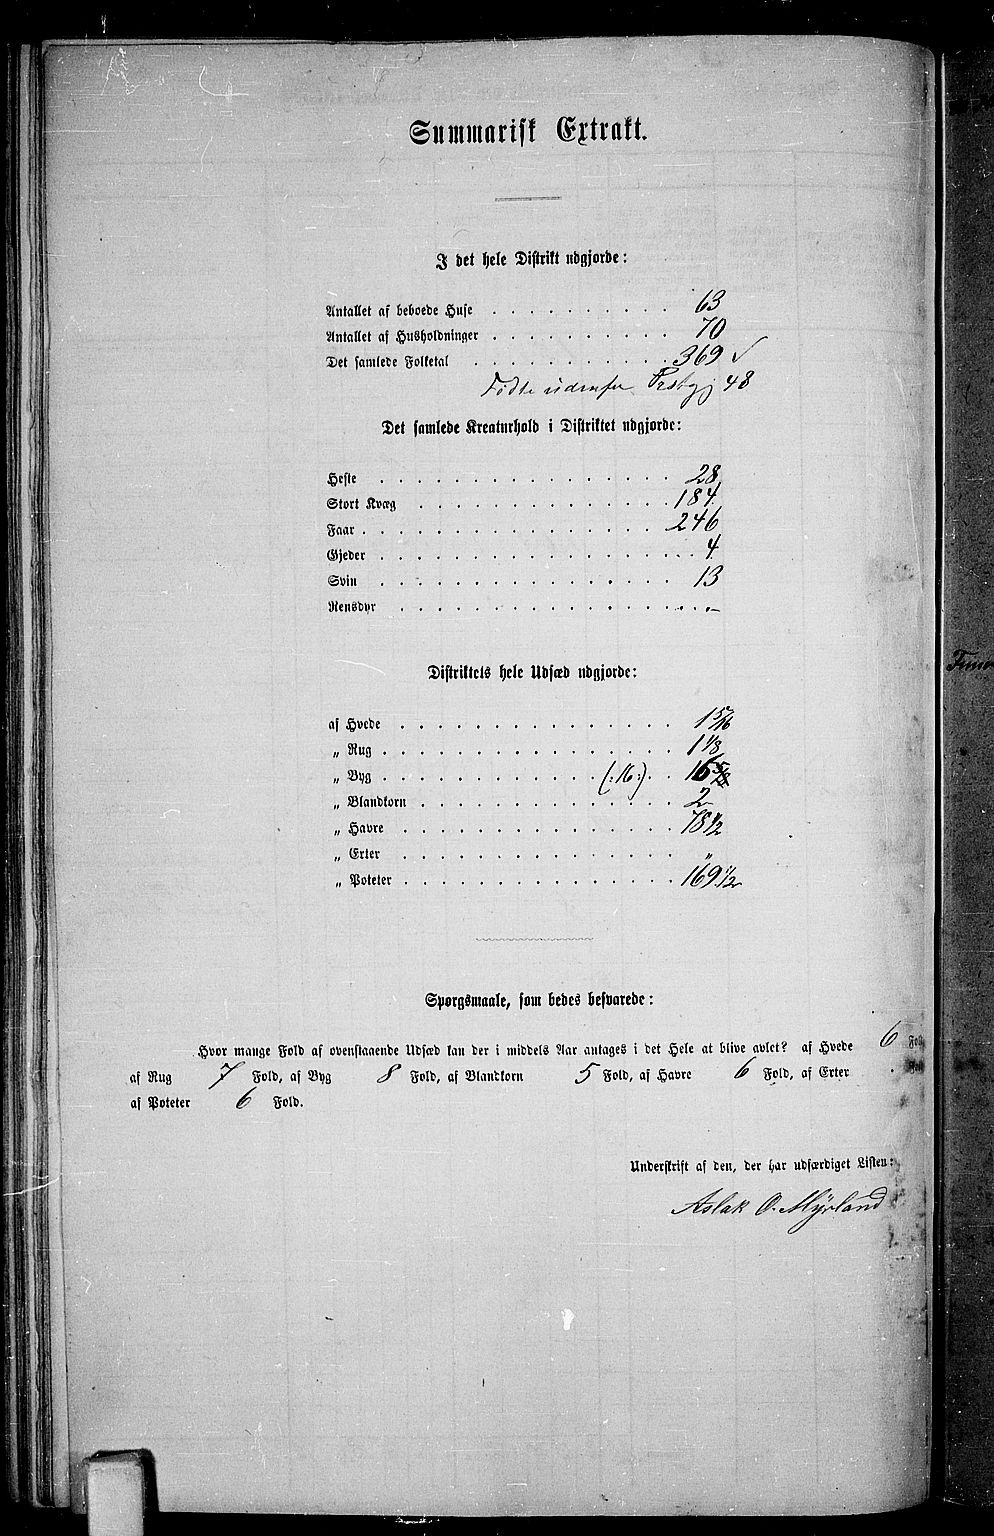 Summarisk Extrakt.
I det hele Distrikt udgjorde:
Antallet af beboede Huse . . . . . . . . . . 63
Antallet af Husholdninger . . . . . . . . . . 70
Det samlede Folketal . . . . . . . . . . . 369 ✓
Fødte udenfor Prstgj 48
Det samlede Kreaturhold i Distriktet udgjorde:
Heste . . . . . . . . . . . . . . . . 28
Stort Kvæg . . . . . . . . . . . . . . 184
Faar . . . . . . . . . . . . . . . . . 246
Gjeder . . . . . . . . . . . . . . . . 4
Svin . . . . . . . . . . . . . . . . 13
Rensdyr . . . . . . . . . . . . . . . –
Distriktets hele Udsæd udgjorde:
af Hvede . . . . . . . . . . . . . . . 1 5/16
„ Rug . . . . . . . . . . . . . . . . 1 1/8
„ Byg . . . . . . . . . . . . (:16:) . . 16 5/8
„ Blandkorn . . . . . . . . . . . . . . 2
„ Havre . . . . . . . . . . . . . . . 78 1/2
„ Erter . . . . . . . . . . . . . . . "
„ Poteter . . . . . . . . . . . . . . . 169 1/2
Spørgsmaale, som bedes besvarede:
Hvor mange Fold af ovenstaaende Udsæd kan der i middels Aar antages i det Hele at blive avlet? af Hvede 6 Fold
af Rug 7 Fold, af Byg 8 Fold, af Blandkorn 5 Fold, af Havre 6 Fold, af Erter . Fold
af Poteter 6 Fold.
Underskrift af den, der har udfærdiget Listen:
Aslak O. Myrland